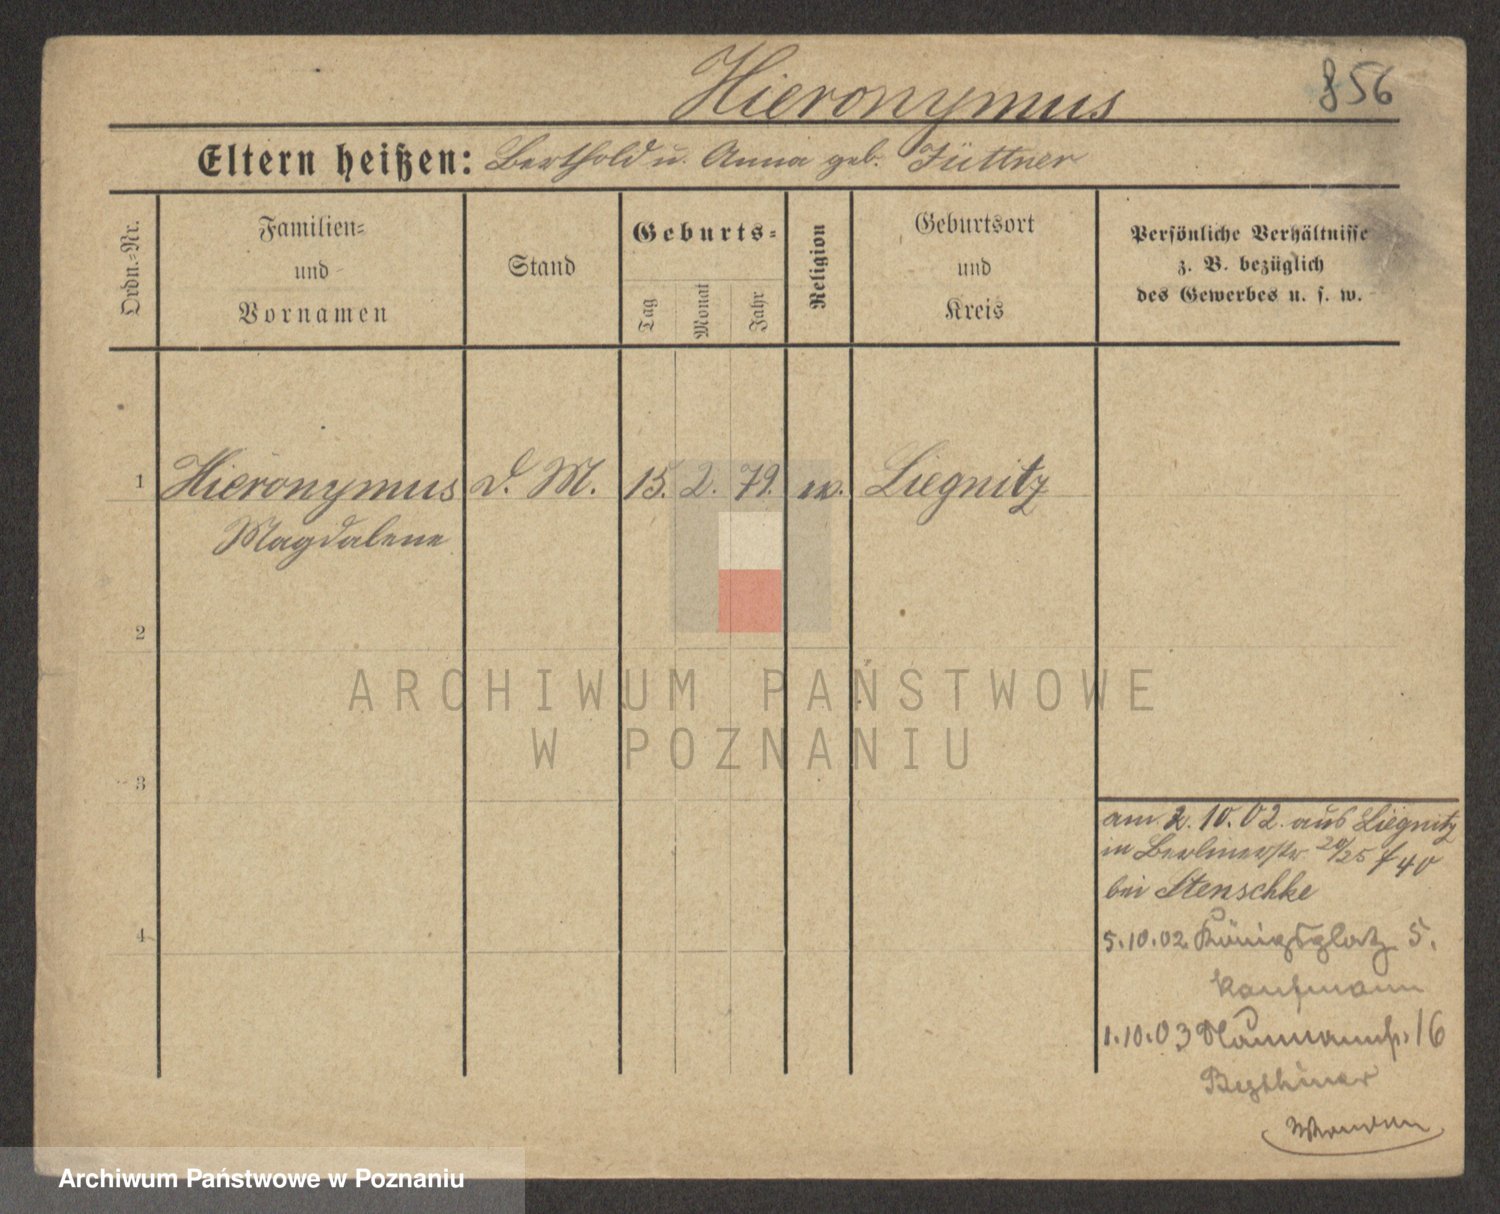 Hieronymus
856
Eltern heißen: Berthold u. Anna geb. Füttner
Ordn.-Nr.
Familien-
und
Vornamen
Stand
Geburts-
Tag
Monat
Jahr
Religion
Geburtsort
und
Kreis
Persönliche Verhältnisse
z. B. bezüglich
des Gewerbes u. s. w.
1 Hieronymus d. M. 15. 2. 79. ev. Liegnitz
Magdalene
2
3
4
am 2. 10. 02. aus Liegnitz
in Berlinerstr.
bei Stenschke
5.10.02 Königsplatz 5.
Kaufmann
1.10.03 Naumannstr. 16
ARCHIWUM PAŃSTWOWE
W POZNANIU
Archiwum Państwowe w Poznaniu